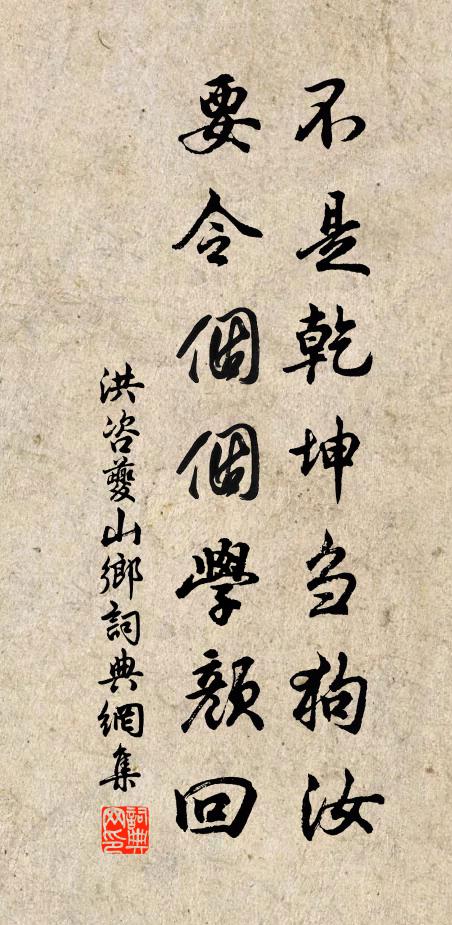 不是乾坤刍狗汝
要令個個學顏回
洪咨夔山鄉詞典網集
詞典網印